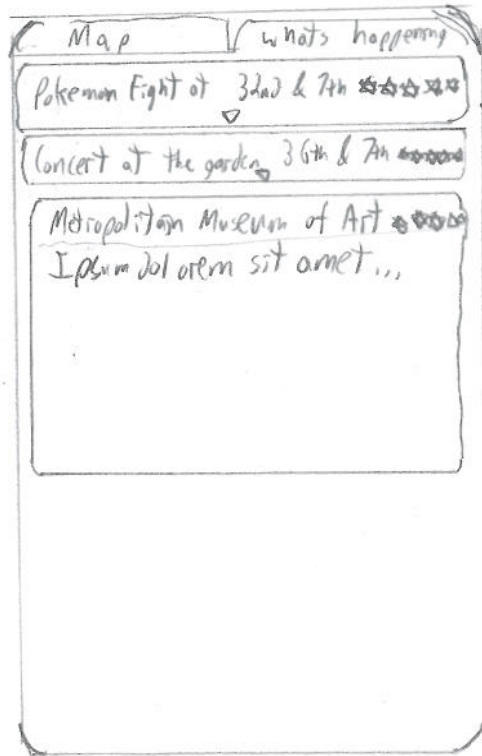 Map
whats happening
Pokemon Fight at 32nd & 7th ☆☆☆☆☆
Concert at the garden 36th & 7th ☆☆☆☆☆
Metropolitain Museum of Art ☆☆☆☆☆
Ipsum dol orem sit amet...